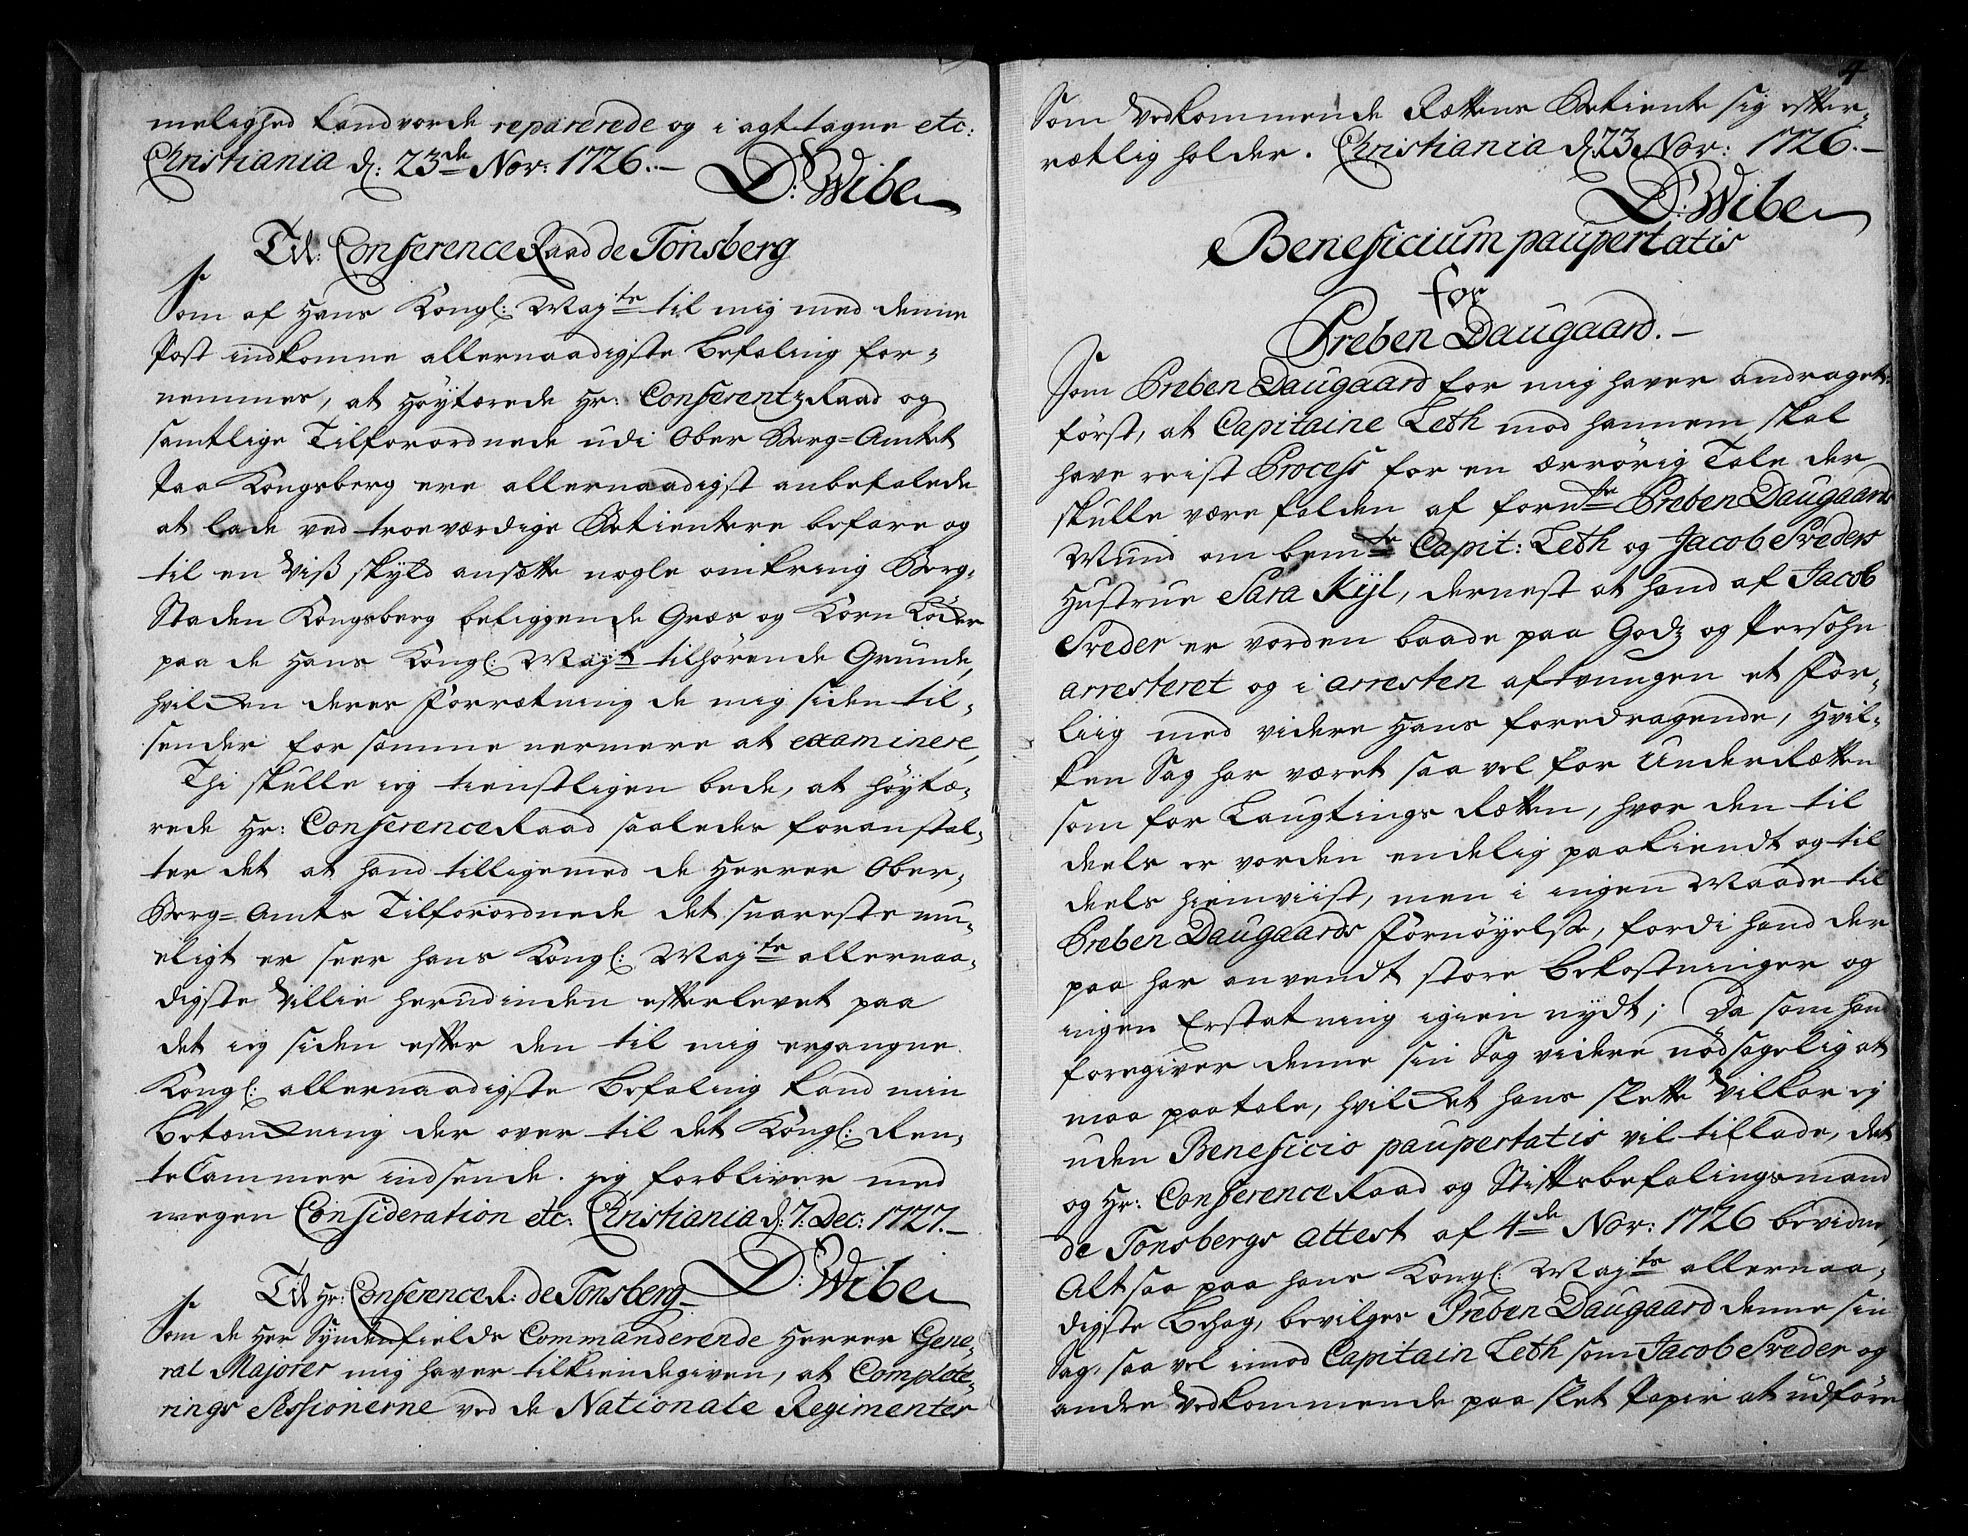 melighed kand vorde reparerede og i agt tagne etc:
Christiania d: 23de Nov: 1726.–
D: Wibe
Til: Conference Raad de Tonsberg
Som af Hans Kongl: Mayts til mig med denne
Post indkomne allernaadigste befaling for-
nemmes, at Höytærede Hr: Conferentz Raad og
samtlige Tilforordnede udi Ober Berg=Amtet
paa Kongsberg ere allernaadigst anbefalede
at lade ved troeværdige Betientere befare og
til en Viss skyld ansætte nogle omkring Berg-
Staden Kongsberg beliggende Græs og Korn Löcker
paa de Hans Kongl: Mayt tilhörende Grunde,
hvilcken deres Forretning de mig siden til-
sender for samme nermere at examinere,
Thi skulle ieg tienstligen bede, at Höytæ-
rede Hr: Conference Raad saaledes foranstal-
ter det at hand tilligemed de Herrer Ober-
Berg=Amts Tilforordnede det snareste mu-
eligt er seer hans Kongl: Mayts allernaa-
digste Villie herudinden efterlevet paa
det ieg siden efter den til mig ergangne
Kongl: allernaadigste Befaling kand min
betænckning der over til det Kongl: Ren-
teCammer indsende. jeg forbliver med
megen Consideration etc: Christiania d: 7: Dec: 1727.–
D: Wibe
Til Hr: Conference R: de Tonsberg
Som de Her Syndenfields Commanderende Herrer Gene-
ral Majorer mig haver tilkiendegiven, at Complete-
rings Sessionerne ved de Nationale Regimenter
4
Som Vedkommende Rettens Betiente sig efter-
rætlig holder. Christiania d: 23 Nov: 1726.–
D: Wibe
Beneficium paupertatis
for
Preben Daugaard.–
Som Preben Daugaard for mig haver andraget
först, at Capitaine Leth mod hannem skal
have reist Process for en ærrörig Tale der
skulle være falden af fornte Preben Daugaards
Mund om bemte Capit: Leth og Jacob Sreders
Hustrue Sara Kyl, dernest at hand af Jacob
Sreder er vorden baade paa Godz og Persohn
arresteret og i arresten aftvungen et For-
liig med videre Hans foredragende, Hvil-
ken Sag har været saa vel for UnderRetten
som for Laugtings Retten, hvor den til
deels er vorden endelig paakiendt og til
deels hiemviist, men i ingen Maade til
Preben Daugaards Fornöyelse, fordi hand der
paa har anvendt store bekostninger og
ingen Erstatning igien nydt; Da som hand
foregiver denne sin Sag videre nödsagelig at
maa paatale, hvilcket hans slette Vilkor ej
uden Beneficio paupertatis vil tillade, det
og Hr: Conference Raad og Stiftsbefalingsmand
de Tonsbergs attest af 4de Nov: 1726 bevidner,
Alt saa paa hans Kongl: Mayts allernaa-
digste Behag, bevilges Preben Daugaard denne sin
Sag, saa vel imod Capitain Leth som Jacob Sreder og
andre Vedkommende paa slet Papir at udföre